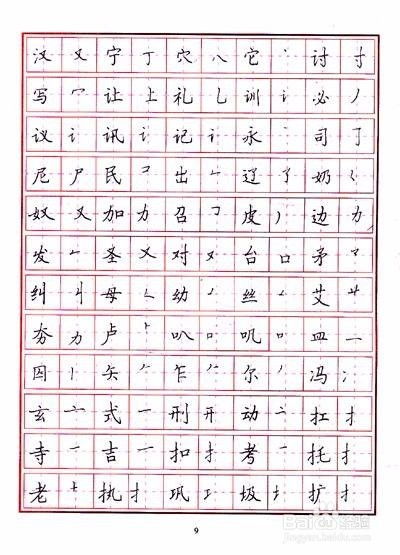 汉 又 宁 丁 穴 八 它 讨 寸
写 冖 让 上 礼 乚 训 讠 必 丿
议 讠 讯 讠 记 讠 永 司 𠃌
尼 尸 民 出 辽 奶
奴 又 加 力 召 皮 边 力
发 圣 又 对 台 口 矛
纠 丩 母 幼 丝 艾 艹
夯 力 卢 叭 叽 皿 一
囚 丨 矢 乍 尔 冯
玄 亠 式 一 刑 开 动 扛 扌
寺 吉 一 扣 扌 考 托 扌
老 执 扌 巩 圾 扩 扌
9
Baidu 经验
jingyan.baidu.com